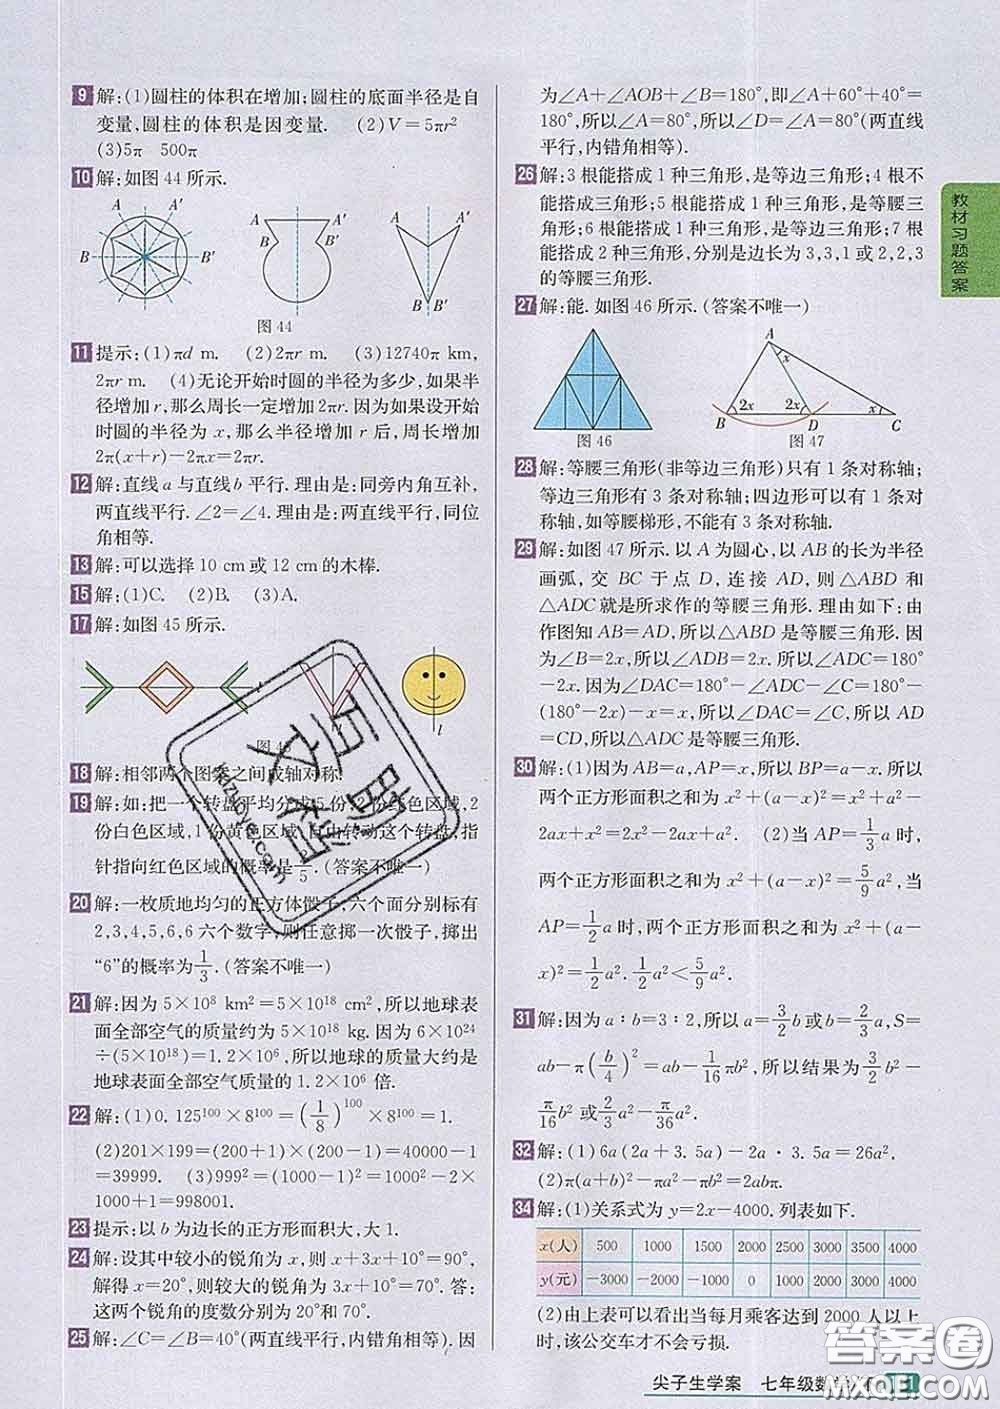 9 解:(1)圆柱的体积在增加;圆柱的底面半径是自
变量,圆柱的体积是因变量. (2)V=5πr²
(3)5π 500π
10 解:如图 44 所示.
A A′ A A′ A A′
B B′ B B′ B B′
图 44
11 提示:(1)πd m. (2)2πr m. (3)12740π km,
2πr m. (4)无论开始时圆的半径为多少,如果半
径增加 r,那么周长一定增加2πr. 因为如果设开始
时圆的半径为 x,那么半径增加 r 后,周长增加
2π(x+r)-2πx=2πr.
12 解:直线 a 与直线 b 平行. 理由是:同旁内角互补,
两直线平行. ∠2=∠4. 理由是:两直线平行,同位
角相等.
13 解:可以选择 10 cm 或 12 cm 的木棒.
15 解:(1)C. (2)B. (3)A.
17 解:如图 45 所示.
l l l
图 45
18 解:相邻两个图案之间成轴对称.
19 解:如:把一个转盘平均分成 5 份,2 份红色区域,2
份白色区域,1 份黄色区域,自由转动这个转盘,指
针指向红色区域的概率是2/5. (答案不唯一)
20 解:一枚质地均匀的正方体骰子,六个面分别标有
2,3,4,5,6,6 六个数字,则任意掷一次骰子,掷出
“6”的概率为1/3. (答案不唯一)
21 解:因为 5×10⁸ km²=5×10¹⁸ cm²,所以地球表
面全部空气的质量约为 5×10¹⁸ kg. 因为 6×10²⁴
÷(5×10¹⁸)=1.2×10⁶,所以地球的质量大约是
地球表面全部空气质量的 1.2×10⁶ 倍.
22 解:(1)0.125¹⁰⁰×8¹⁰⁰=(1/8)¹⁰⁰×8¹⁰⁰=1.
(2)201×199=(200+1)×(200-1)=40000-1
=39999. (3)999²=(1000-1)²=1000²-2×
1000+1=998001.
23 提示:以 b 为边长的正方形面积大,大 1.
24 解:设其中较小的锐角为 x,则 x+3x+10°=90°,
解得 x=20°,则较大的锐角为 3x+10°=70°. 答:
这两个锐角的度数分别为 20°和 70°.
25 解:∠C=∠B=40°(两直线平行,内错角相等). 因
为∠A+∠AOB+∠B=180°,即∠A+60°+40°=
180°,所以∠A=80°,所以∠D=∠A=80°(两直线
平行,内错角相等).
26 解:3 根能搭成 1 种三角形,是等边三角形;4 根不
能搭成三角形;5 根能搭成 1 种三角形,是等腰三
角形;6 根能搭成 1 种三角形,是等边三角形;7 根
能搭成 2 种三角形,分别是边长为 3,3,1 或 2,2,3
的等腰三角形.
27 解:能. 如图 46 所示. (答案不唯一)
A x 2x 2x x B D C
图 46 图 47
28 解:等腰三角形(非等边三角形)只有 1 条对称轴;
等边三角形有 3 条对称轴;四边形可以有 1 条对
称轴,如等腰梯形,不能有 3 条对称轴.
29 解:如图 47 所示. 以 A 为圆心,以 AB 的长为半径
画弧,交 BC 于点 D,连接 AD,则△ABD 和
△ADC 就是所求作的等腰三角形. 理由如下:由
作图知 AB=AD,所以△ABD 是等腰三角形. 因
为∠B=2x,所以∠ADB=2x,所以∠ADC=180°
-2x. 因为∠DAC=180°-∠ADC-∠C=180°-
(180°-2x)-x=x,所以∠DAC=∠C,所以 AD
=CD,所以△ADC 是等腰三角形.
30 解:(1)因为 AB=a,AP=x,所以 BP=a-x. 所以
两个正方形面积之和为 x²+(a-x)²=x²+a²-
2ax+x²=2x²-2ax+a². (2)当 AP=1/3a 时,
两个正方形面积之和为 x²+(a-x)²=5/9a²,当
AP=1/2a 时,两个正方形面积之和为 x²+(a-
x)²=1/2a². 1/2a²<5/9a².
31 解:因为 a∶b=3∶2,所以 a=3/2b 或 b=2/3a,S=
ab-π(b/4)²=ab-1/16πb²,所以结果为3/2b²-
π/16b² 或2/3a²-π/36a².
32 解:(1)6a(2a+3.5a)-2a·3.5a=26a².
(2)π(a+b)²-πa²-πb²=2πab.
34 解:(1)关系式为 y=2x-4000. 列表如下.
x(人) 500 1000 1500 2000 2500 3000 3500 4000
y(元) -3000 -2000 -1000 0 1000 2000 3000 4000
(2)由上表可以看出当每月乘客达到 2000 人以上
时,该公交车才不会亏损.
教材习题答案
尖子生学案 七年级数学
答案圈
MXQE.COM